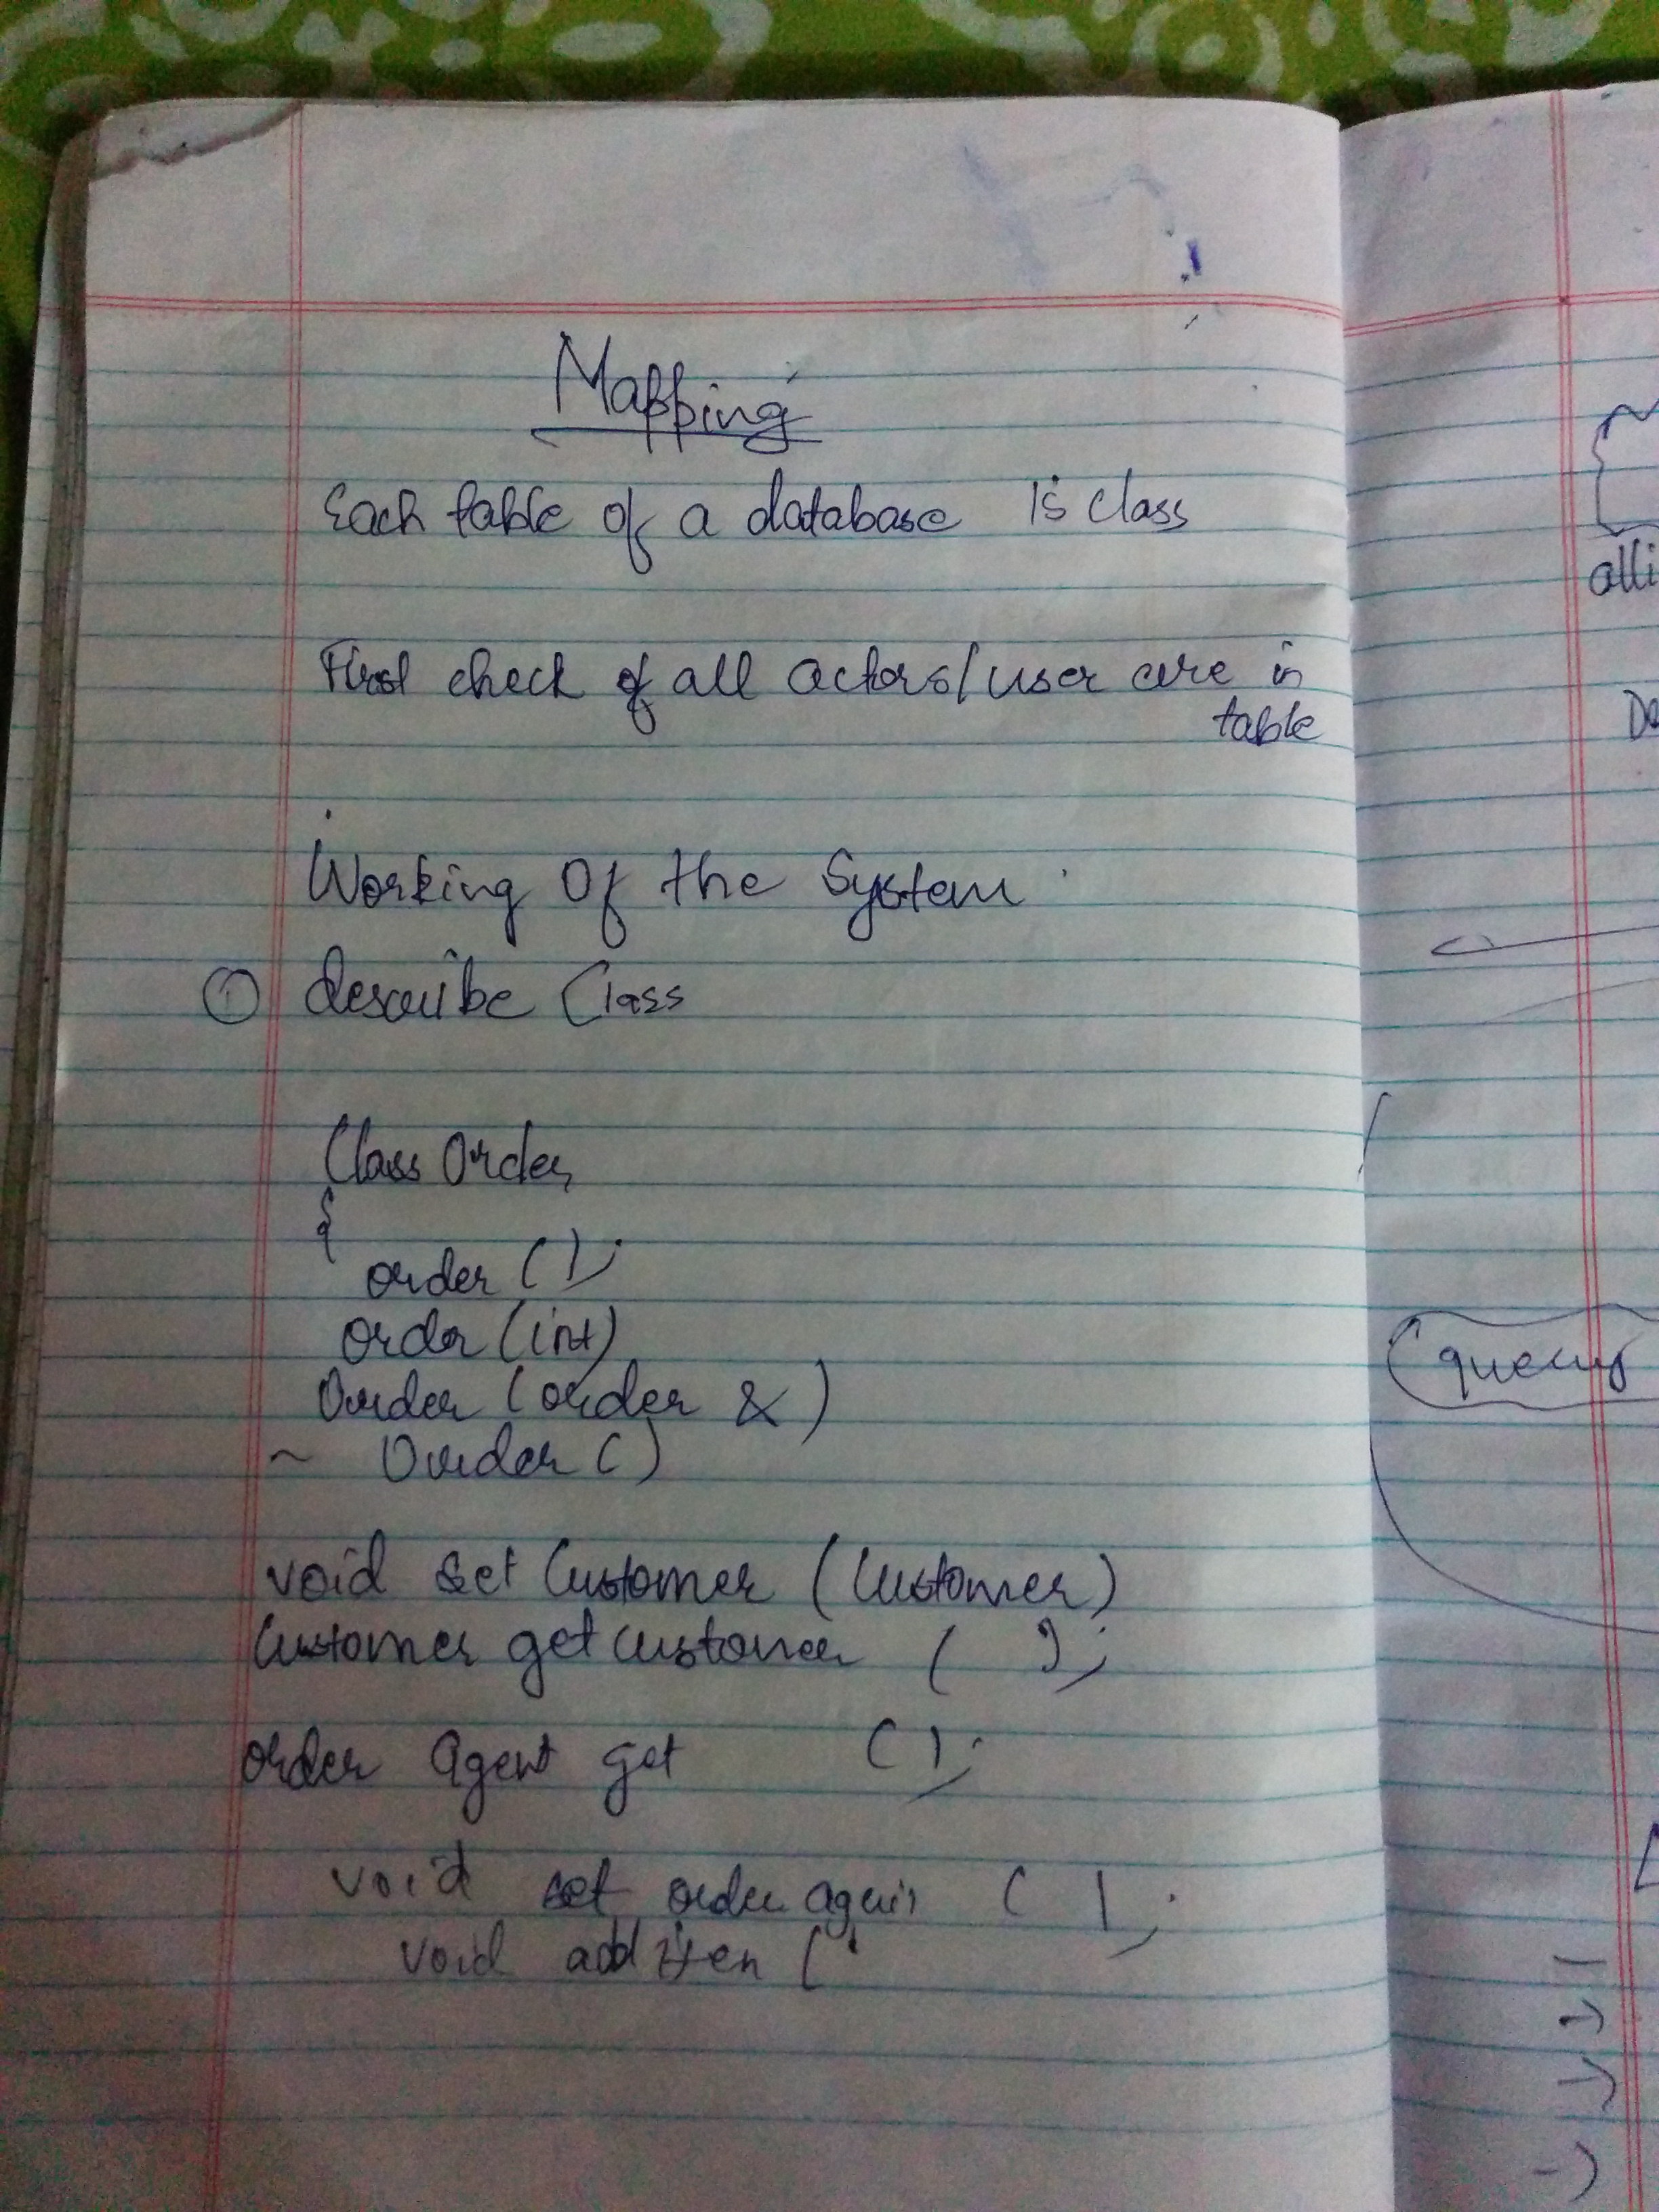 Mapping
Each table of a database is class
First check if all actors/user are in
table
Working Of the System
① describe Class
Class Order
{
order ( );
order (int)
Order (order &)
~ Order ( )
void set Customer (Customer)
Customer get customer ( );
order agent get ( );
void set order again ( );
void add item (
alli
De
query